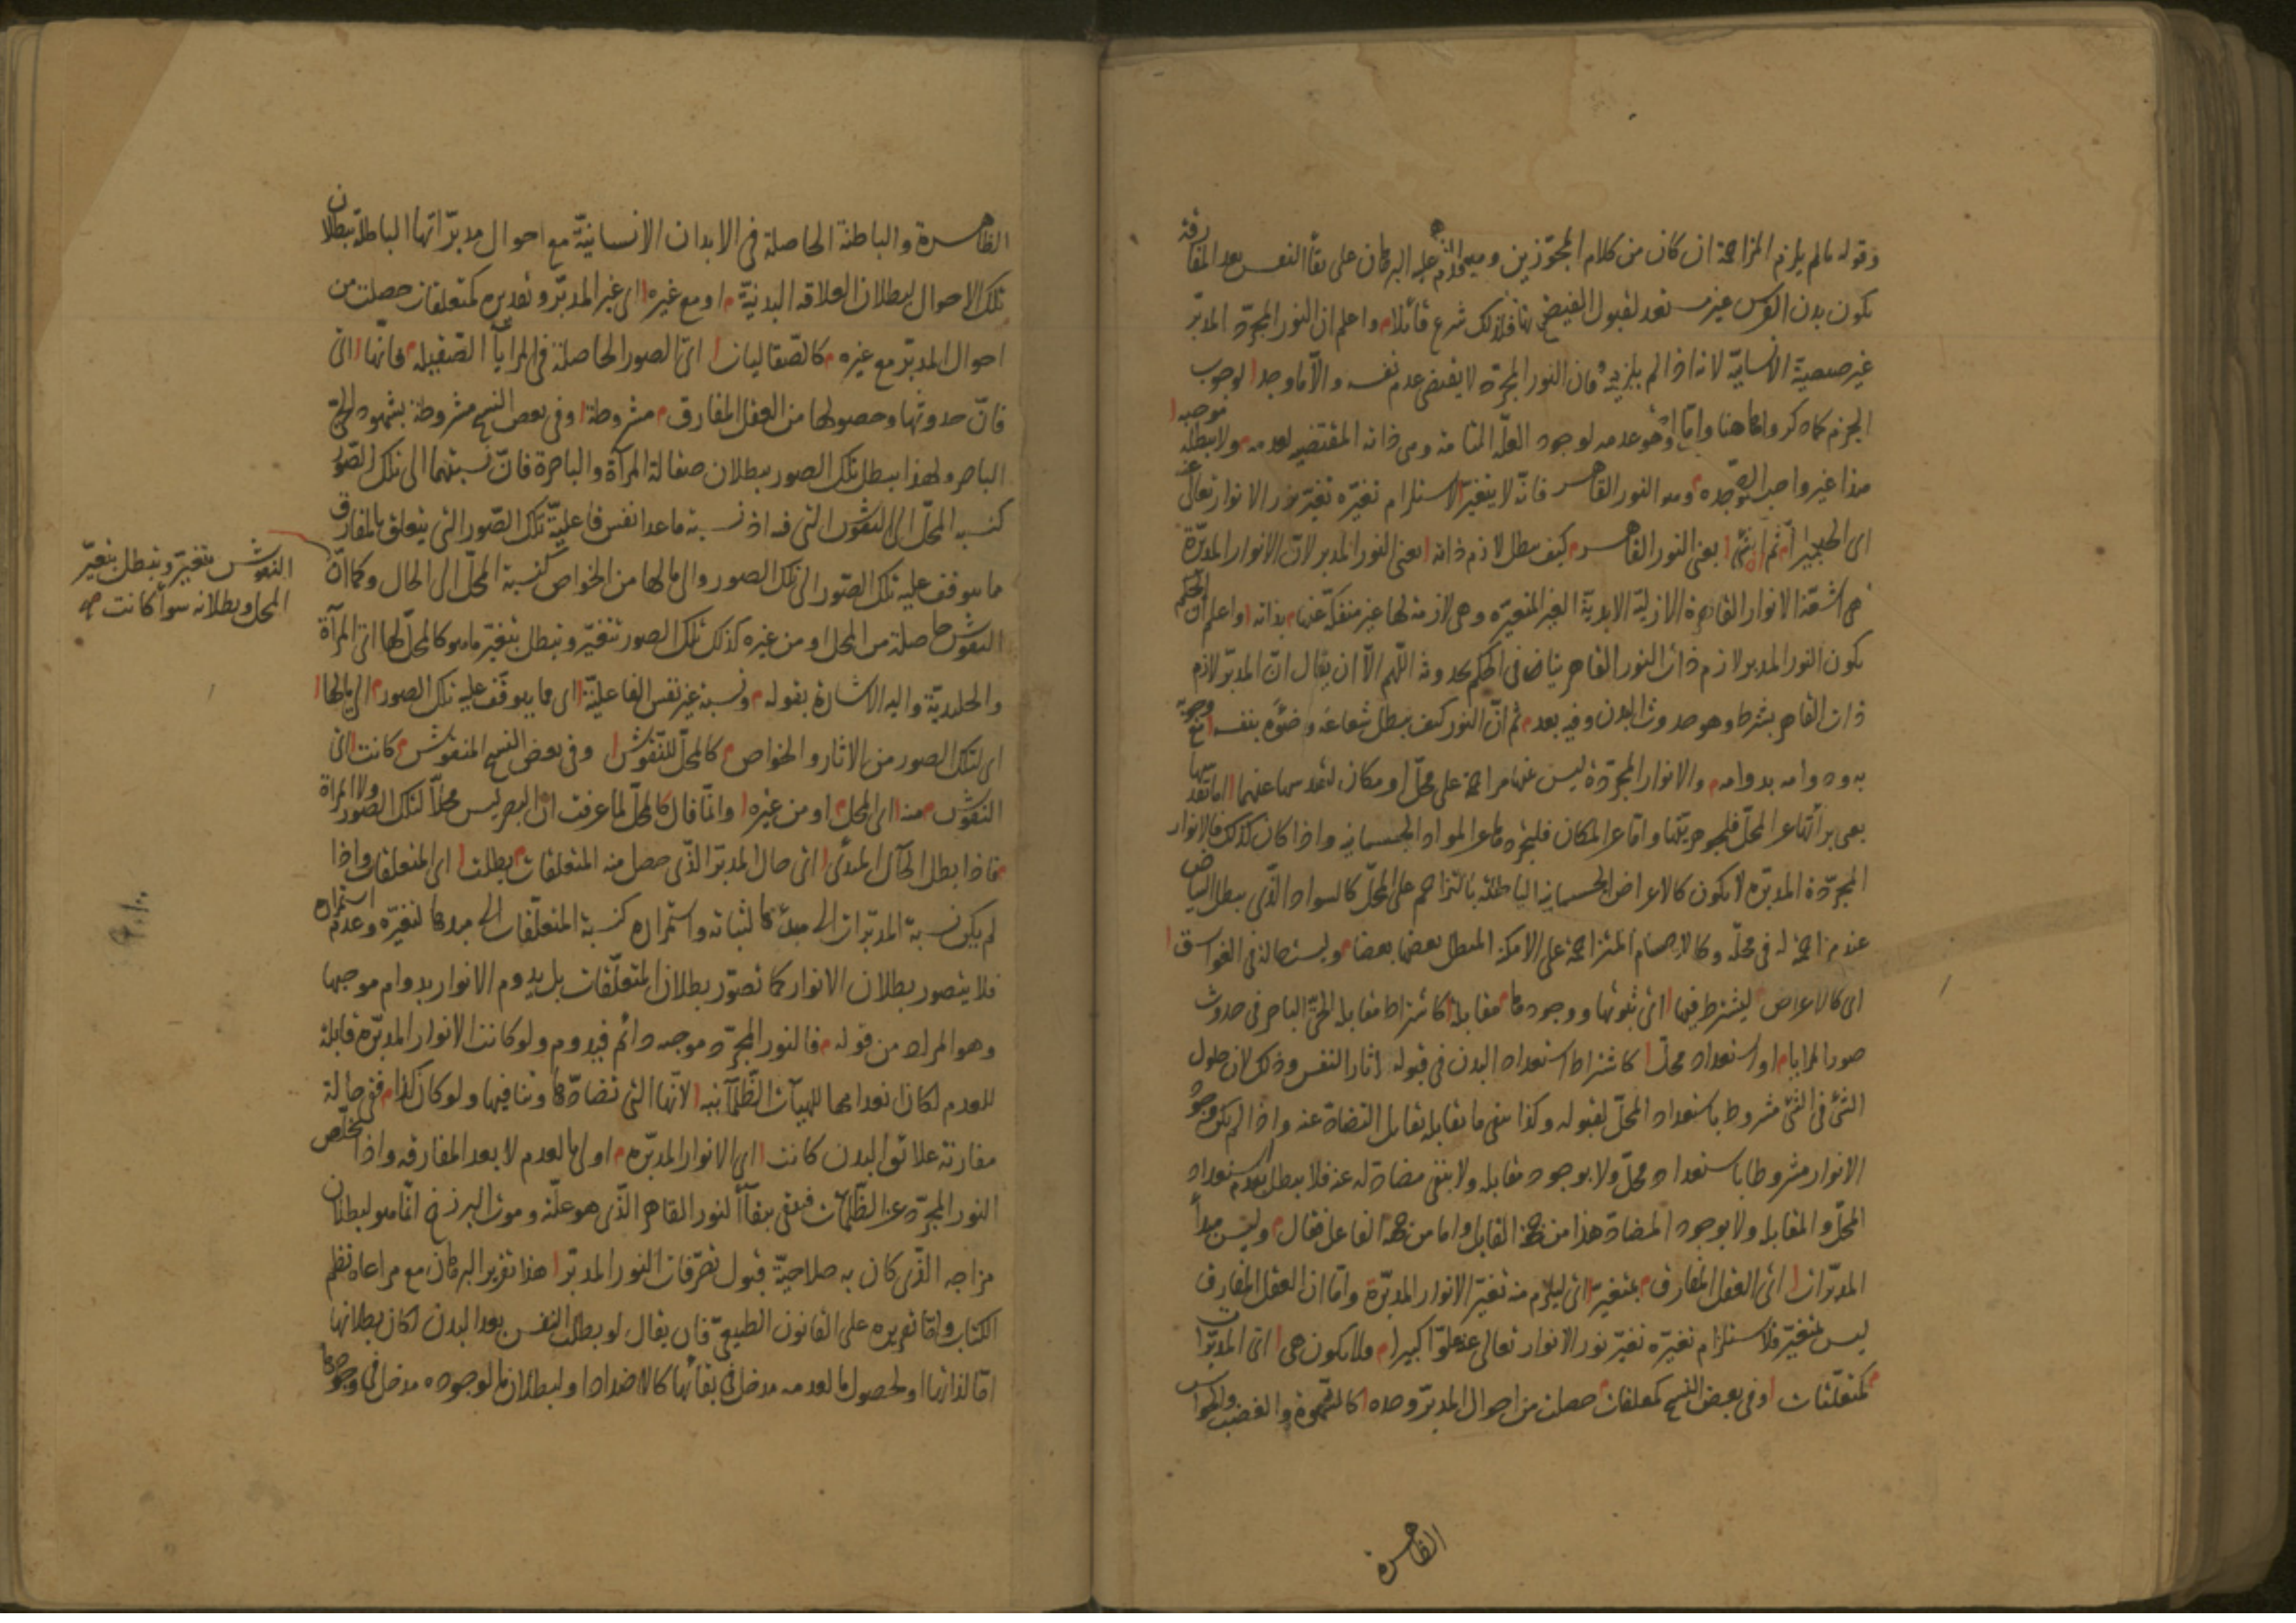 وقوله ما لم يلزم المزاحمة ان كان من كلام المجوزين عليه البرهان على بقاء النفس بعد المفارقة
يكون بدن الفرس غير مستعد لقبول الفيض شرع قائلا واعلم ان النور المجرد المدبر
غير صيصية الانسانية لانه اذا لم يلزم فان النور المجرد لا يقتضى عدم نفسه والا ما وجد لوجوب
الجزم كما ذكرواه هاهنا وهو عدمه لوجود العلة التامة ومن ذاته المقتضيه لعدمه ولا يبطله موجبه
وهو النور القاهر فانه لا يتغير لاستلزام تغيره تغير نور الانوار تعالى عنه
ثم الشئ يعنى النور القاهر كيف يبطل لازم ذاته يعنى النور المدبر لان الانوار المدبرة
هى اشعة الانوار القاهرة الازلية الابدية الغير المتغيره وهى لازمة لها غير منفكة عنها بذاته واعلم ان الحكم
بكون النور المدبر لازم ذات النور القاهر يناقض الحكم بحدوثه اللهم الا ان يقال ان المدبر لازم
ذات القاهر بشرط وهو حدوث البدن وفيه بعد ثم ان النور كيف يبطل شعاعه وضوءه بنفسه مع وجوبه
به ودوامه بدوامه والانوار المجردة ليس عنها مزاحمة على محل او مكان لتقدسها عنهما اما تقدسها
يعنى براتها عن المحل فلجوهريتها واما عن المكان فلتجردها عن المواد الجسمانيه واذا كان كذلك فالانوار
المجردة المدبره لا يكون كالاعراض الجسمانيه الباطلة بالتزاحم على المحل كالسواد الذى يبطل البياض
عند مزاحمته له فى محله وكالاجسام المتزاحمة على الامكنة المبطل بعضها بعضا وليست حالة فى الغواسق
اى كالاعراض ليشترط فيها اى ثبوتها ووجودها مقابلة كاشتراط مقابلة الحى الباصر فى حدوث
صور المرايا او استعداد محل كاشتراط استعداد البدن فى قبوله اثار النفس وذلك لان حلول
الشئ فى الشئ مشروط باستعداد المحل لقبوله وكذا بنفى ما يقابله تقابل التضاد عنه واذا لم يكن وجود
الانوار مشروطا باستعداد محل ولا بوجود مقابله ولا بنفى مضاد له عنه فلا يبطل بعدم استعداد
المحل والمقابله ولا بوجود المضاد هذا من جهة القابل واما من جهة الفاعل فقال وليس مبدأ
المدبرات اى العقل المفارق بمتغير اى ليلزم منه تغير الانوار المدبرة واما ان العقل المفارق
ليس بمتغير فلاستلزام تغيره تغير نور الانوار تعالى عنه علوا كبيرا فلا يكون هى اى المدبرات
كمتعلقات وفى بعض النسخ كمعلقات حصلت من احوال المدبر وحده كالشهوة والغضب والحواس
الظاهرة
الظاهرة والباطنة الحاصلة فى الابدان الانسانية مع احوال مدبراتها الباطلة ببطلان
تلك الاحوال لبطلان العلاقه البدنية او مع غيره اى غير المدبر وتقديره كمتعلقات حصلت من
احوال المدبر مع غيره كالصقاليات اى الصور الحاصلة فى المرايا الصقيله فانها اى
فان حدوثها وحصولها من العقل المفارق مشروطة وفى بعض النسخ مشروطة بشهود الحى
الباصر ولهذا يبطل تلك الصور ببطلان صقالة المرآة والباصرة فان نسبتهما الى تلك الصور
كنسبه المحل الى النقوش التى فيه اذ نسبة ما عدا نفس فاعلية تلك الصور التى يتعلق بالمفارق
ما يتوقف عليه تلك الصور الى تلك الصور والى ما لها من الخواص كنسبة المحل الى الحال وكما ان
النقوش تتغير وتبطل بتغير
المحل وبطلانه سواء كانت صح
النقوش حاصلة من المحل او من غيره كذلك تلك الصور تتغير وتبطل بتغير ما هو كالمحل لها اى المرآة
والجليدية واليه الاشارة بقوله ونسبة غير نفس الفاعلية اى ما يتوقف عليه تلك الصور الى ما لها
اى لتلك الصور من الاثار والخواص كالمحل للنقوش وفى بعض النسخ المنقوش كانت اى
النقوش منه اى المحل او من غيره وانما قال كالمحل لما عرفت ان البصر ليس محلا لتلك الصور ولا المرآة
فاذا بطل الحال المبدئ اى حال المدبر الذى حصل منه المتعلقات بطلت اى المتعلقات واذا
لم يكن نسبة المدبرات الى مبدئها لثباته واستمراره كنسبة المتعلقات الى مبدئها لتغيره وعدم استمراره
فلا يتصور بطلان الانوار كما تصور بطلان المتعلقات بل يدوم الانوار بدوام موجبها
وهو المراد من قوله فالنور المجرد موجبه دائم فيدوم ولو كانت الانوار المدبره قابلة
للعدم لكان انعدامها للهيآت الظلمانيه لانها التى تضادها وتنافيها ولو كان كذا ففى حالة
مقارنة علائق البدن كانت اى الانوار المدبره اولى بالعدم لا بعد المفارقه واذا تخلص
النور المجرد عن الظلمات فيبقى ببقاء النور القاهر الذى هو علته وموت البرزخ انما هو لبطلان
مزاجه الذى كان به صلاحية قبول تصرفات النور المدبر هذا تقرير البرهان مع مراعاة نظم
الكتاب واما تقريره على القانون الطبيعى فان يقال لو بطلت النفس بعد البدن لكان بطلانها
اما لذاتها او لحصول ما لعدمه مدخل فى بقائها كالاضداد او لبطلان ما لوجوده مدخل فى وجودها